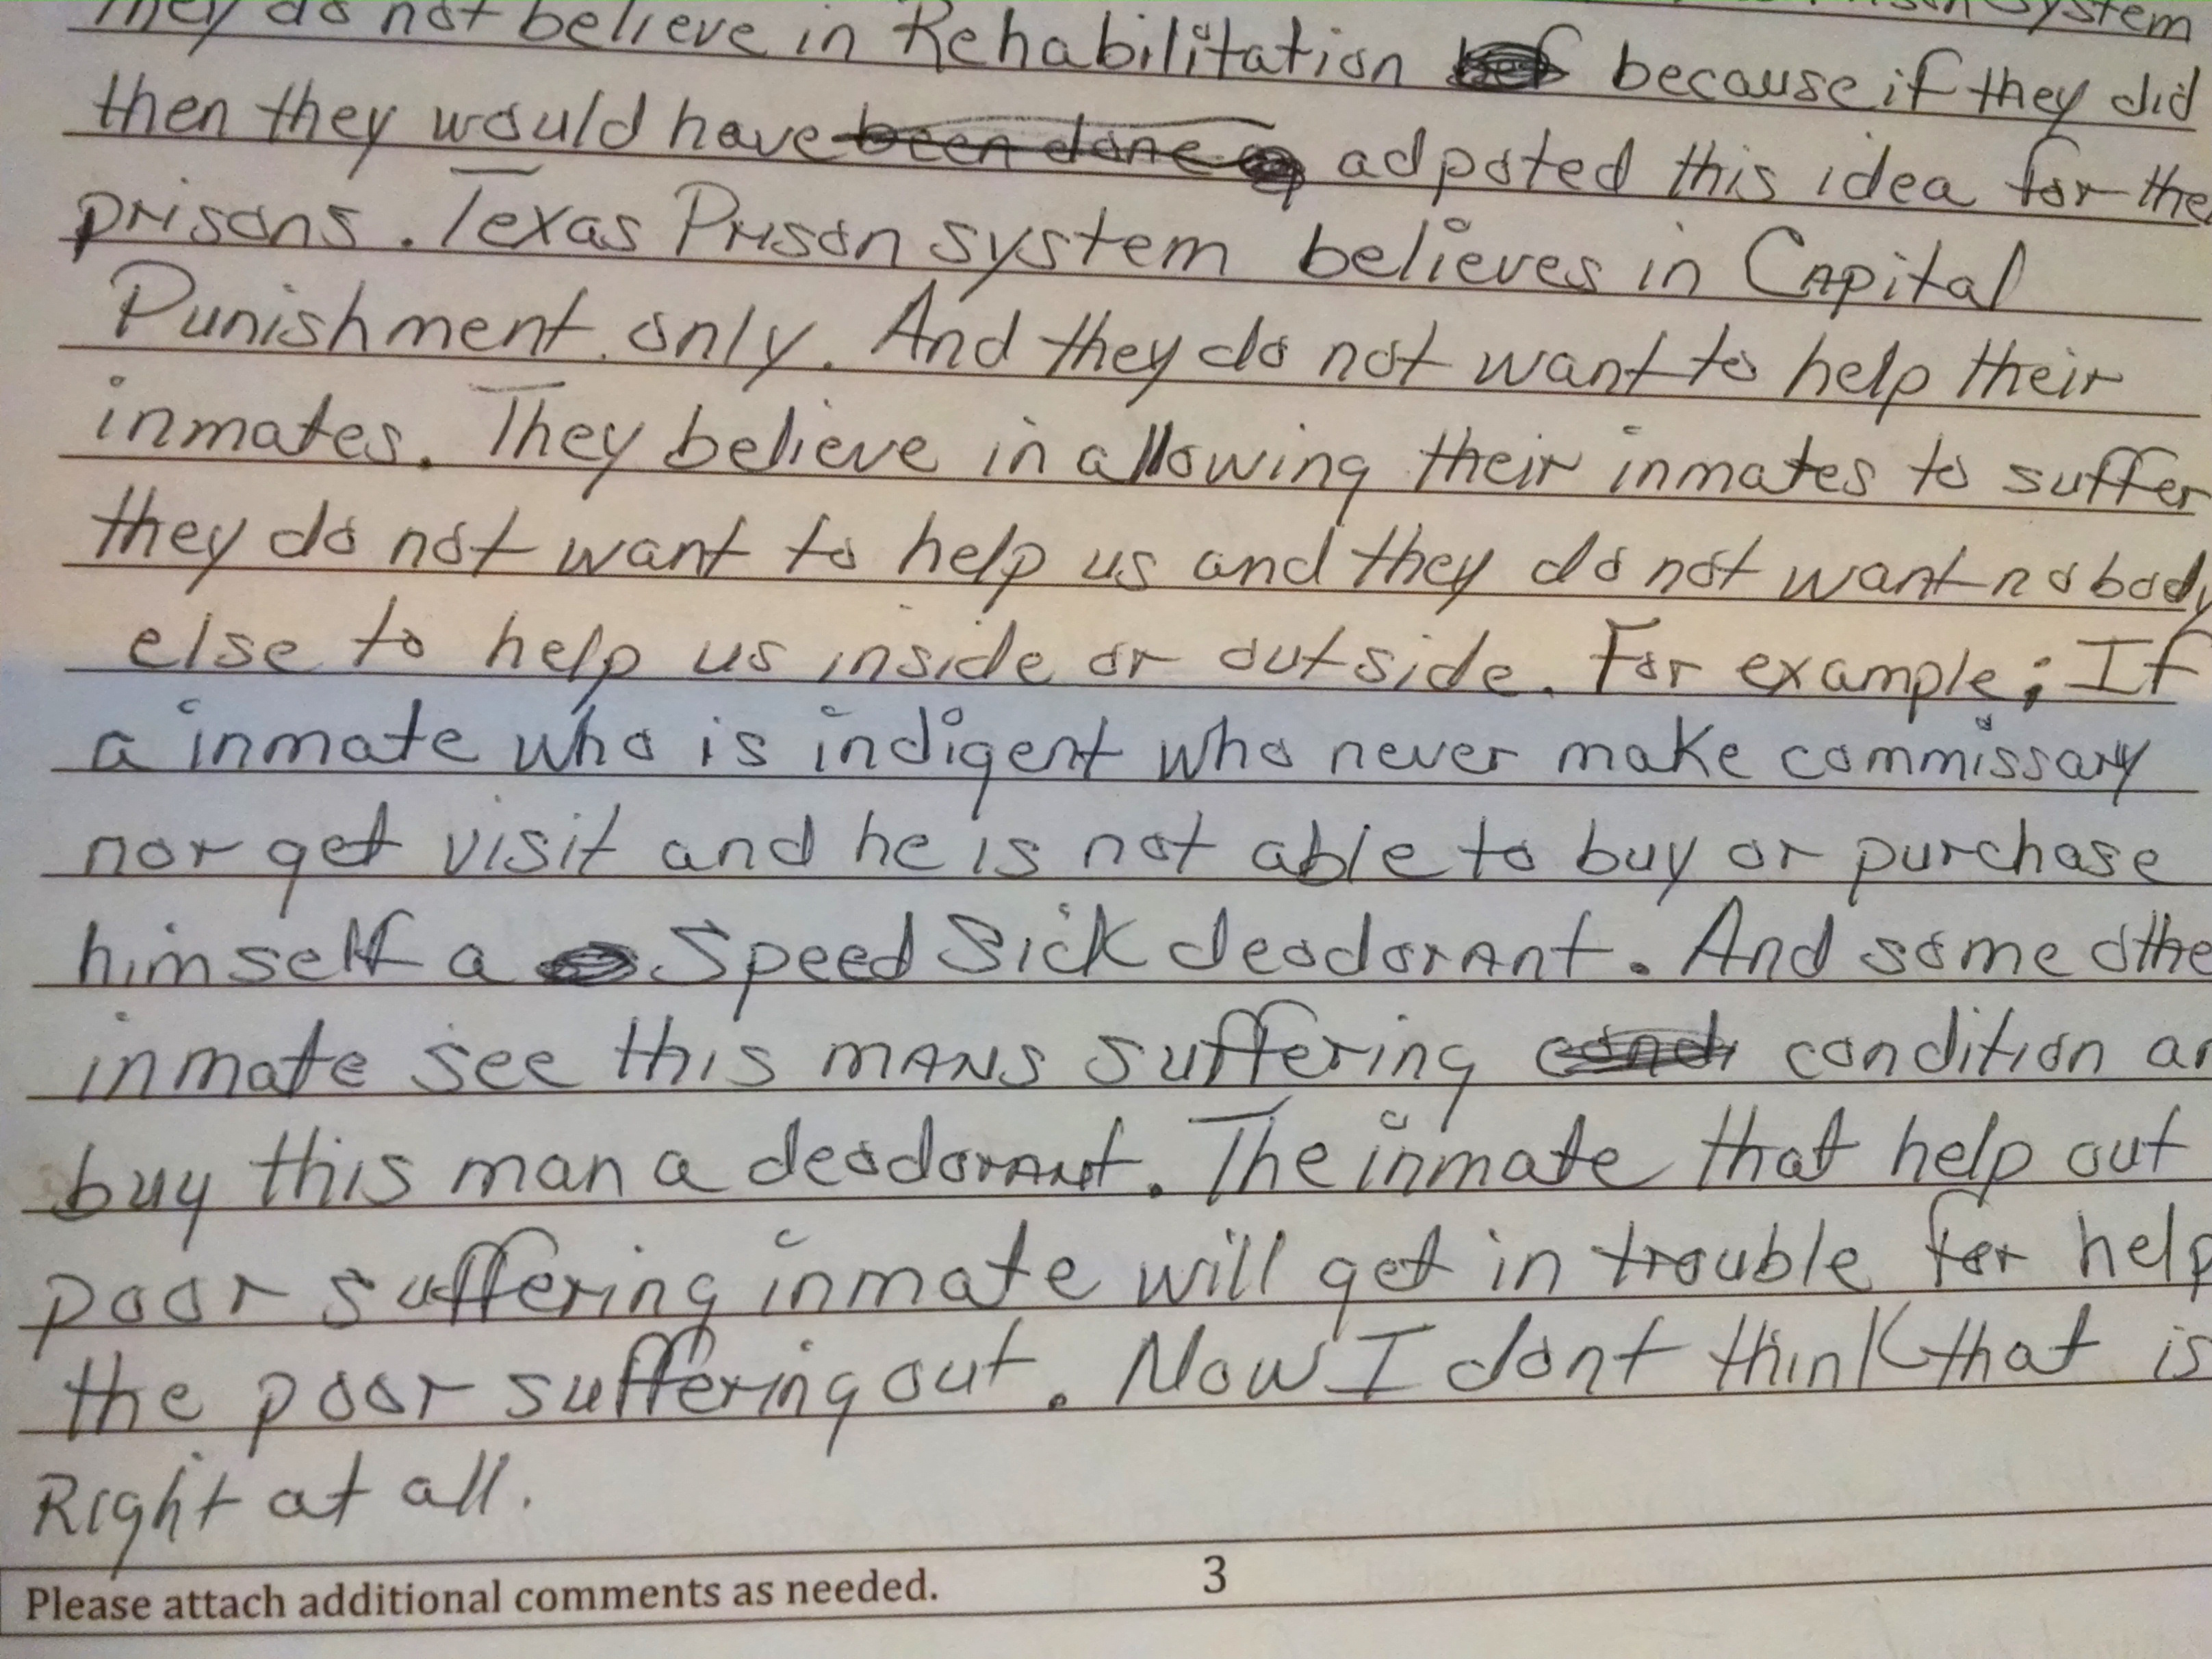 They do not believe in Rehabilitation because if they did
then they would have been done adpoted this idea for the
prisons. Texas Prison system believes in Capital
Punishment only. And they do not want to help their
inmates. They believe in allowing their inmates to suffer
they do not want to help us and they do not want nobody
else to help us inside or outside. For example; If
a inmate who is indigent who never make commissary
nor get visit and he is not able to buy or purchase
himself a Speed Sick deodorant. And some othe
inmate see this mans suffering condition an
buy this man a deodorant. The inmate that help out
poor suffering inmate will get in trouble for help
the poor suffering out. Now I dont think that is
Right at all.
Please attach additional comments as needed. 3